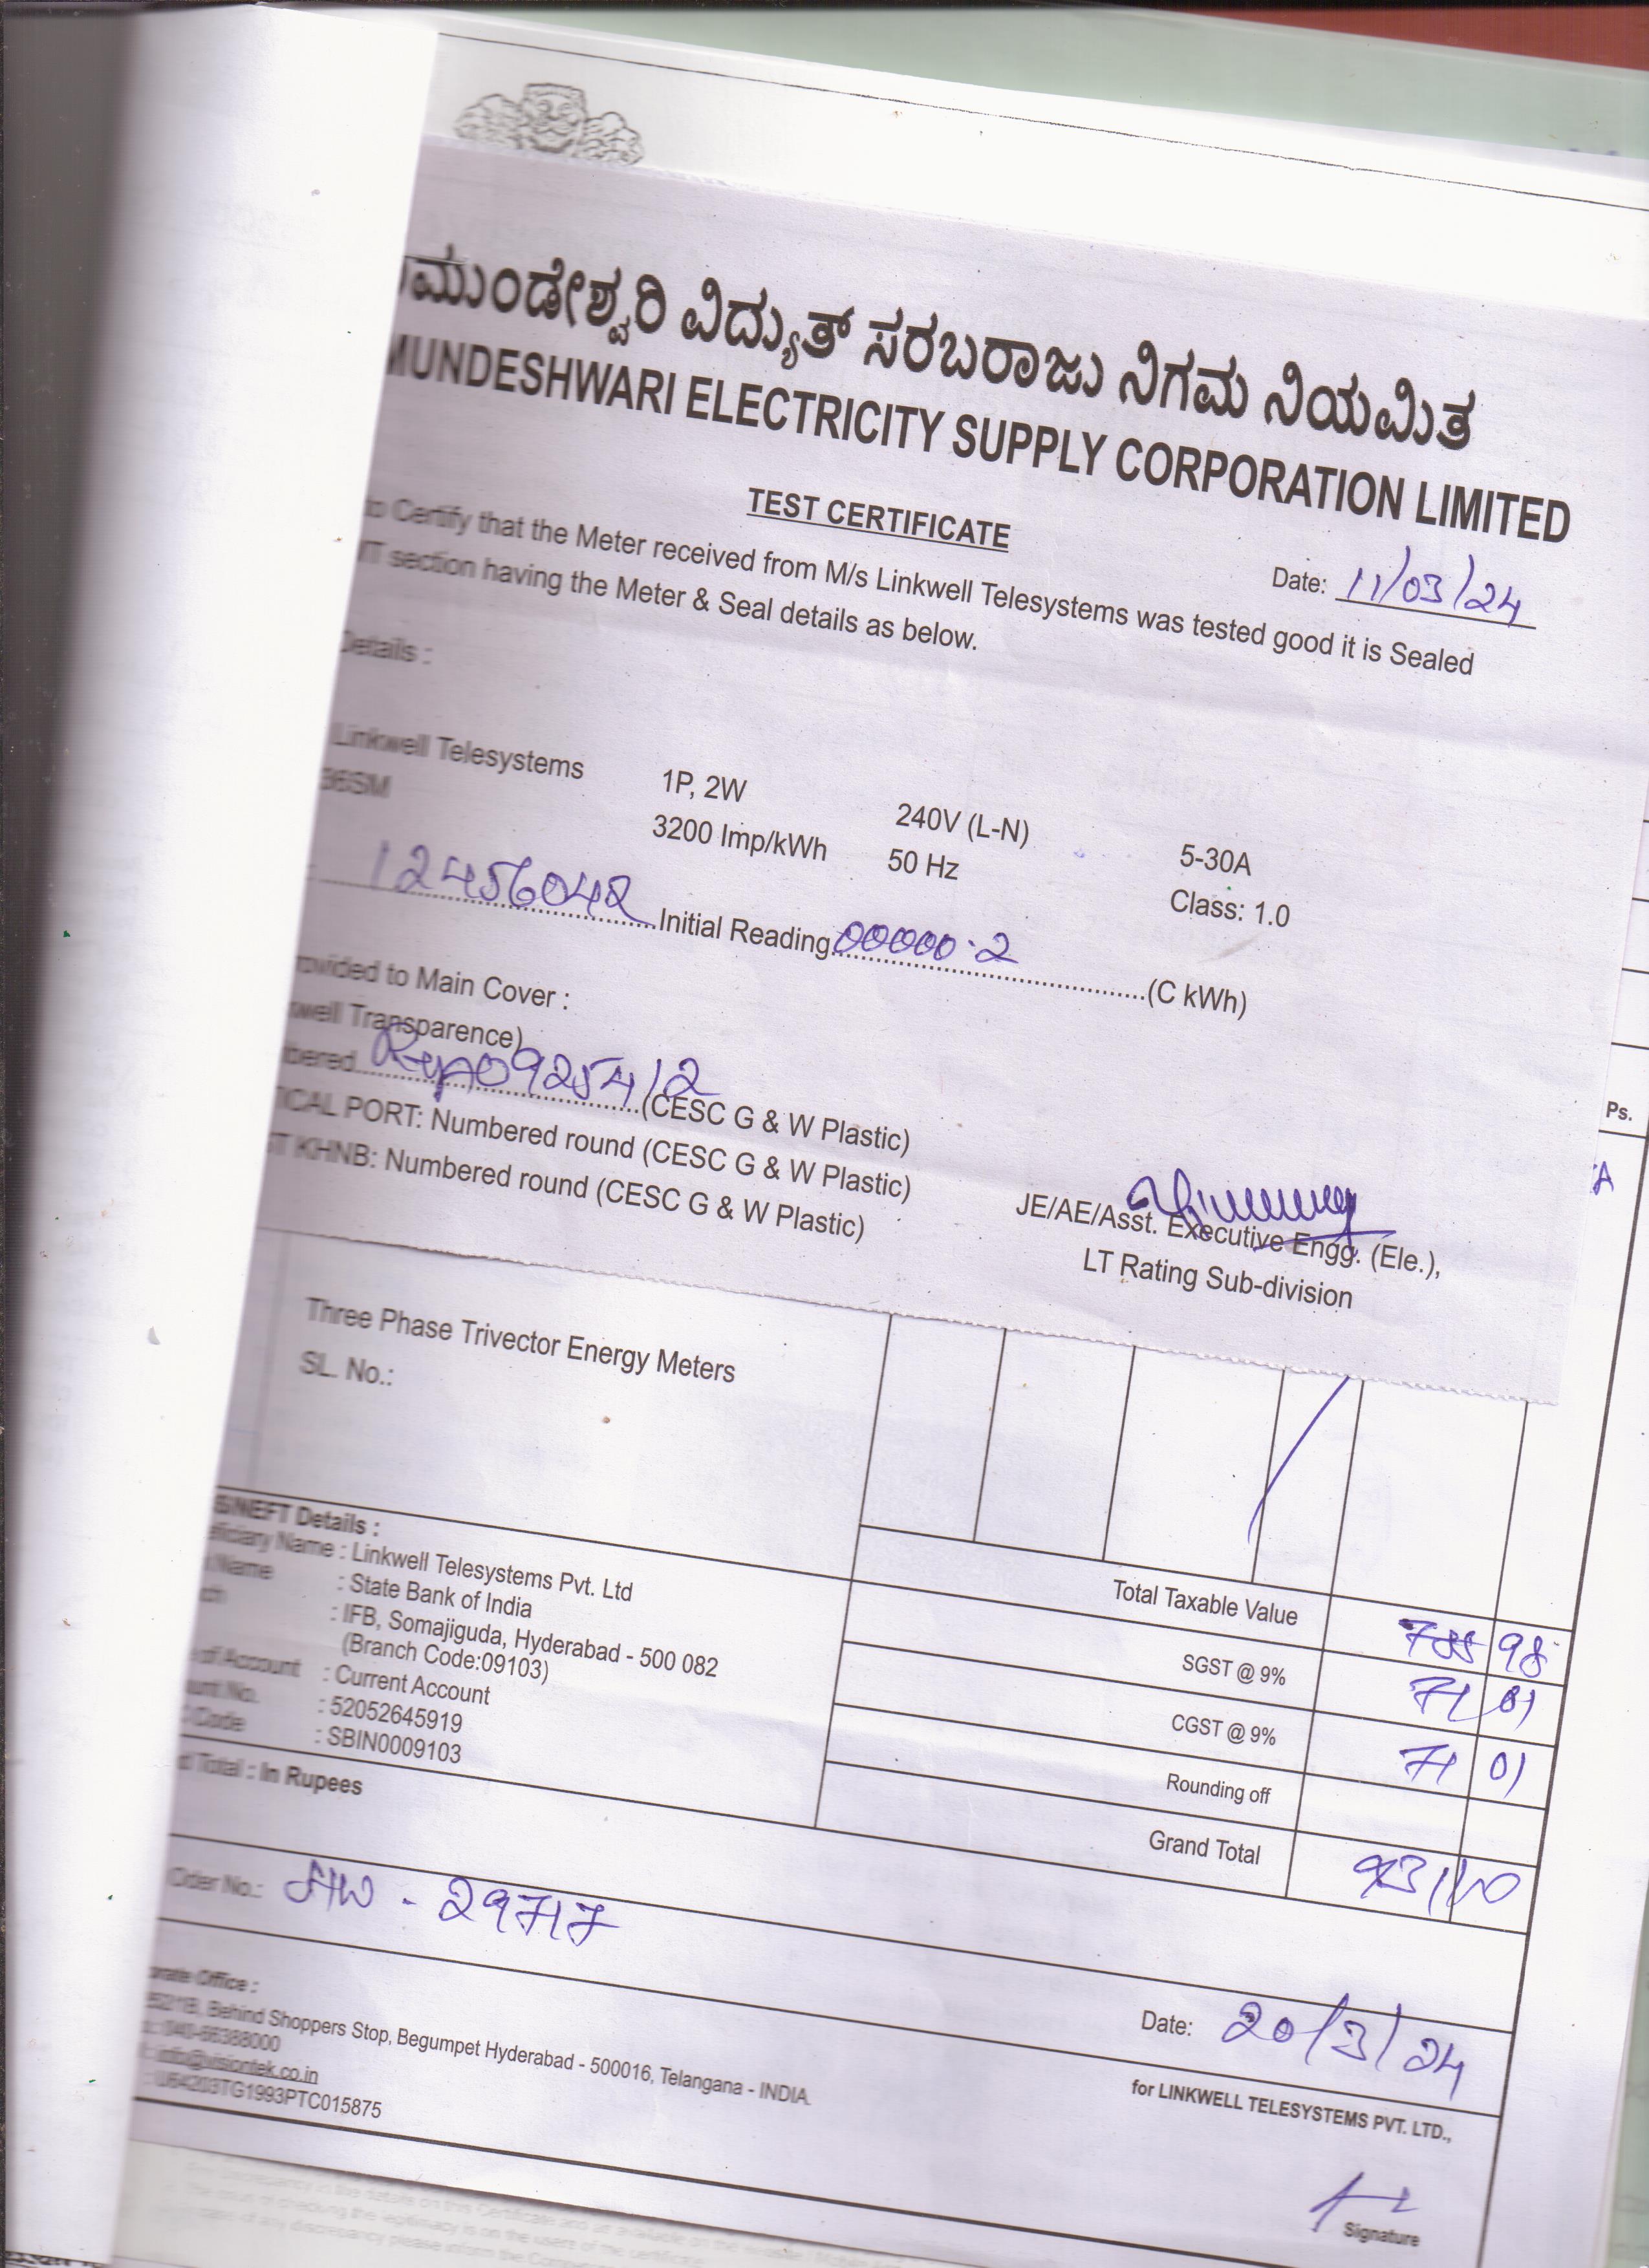 ಮುಂಡೇಶ್ವರಿ ವಿದ್ಯುತ್ ಸರಬರಾಜು ನಿಗಮ ನಿಯಮಿತ
MUNDESHWARI ELECTRICITY SUPPLY CORPORATION LIMITED
TEST CERTIFICATE
Date: 11/03/24
to Certify that the Meter received from M/s Linkwell Telesystems was tested good it is Sealed
section having the Meter & Seal details as below.
Details :
Linkwell Telesystems 1P, 2W 240V (L-N) 5-30A
36SM 3200 Imp/kWh 50 Hz Class: 1.0
12456042 Initial Reading 00000.2 (C kWh)
rovided to Main Cover :
well Transparence)
bered 09254/2 (CESC G & W Plastic)
TICAL PORT: Numbered round (CESC G & W Plastic)
T KHNB: Numbered round (CESC G & W Plastic)
JE/AE/Asst. Executive Engg. (Ele.),
LT Rating Sub-division
Ps.
Three Phase Trivector Energy Meters
SL. No.:
S/NEFT Details :
eficiary Name : Linkwell Telesystems Pvt. Ltd
Name : State Bank of India
ch : IFB, Somajiguda, Hyderabad - 500 082
(Branch Code:09103)
of Account : Current Account
unt No. : 52052645919
Code : SBIN0009103
Total Taxable Value 788 98
SGST @ 9% 71 01
CGST @ 9% 71 01
Rounding off
Grand Total 931/00
d Total : In Rupees
Oder No.: - 29717
Date: 20/3/24
orate Office :
5211B, Behind Shoppers Stop, Begumpet Hyderabad - 500016, Telangana - INDIA.
: 040-66388000
: info@visiontek.co.in
: U64203TG1993PTC015875
for LINKWELL TELESYSTEMS PVT. LTD.,
Signature